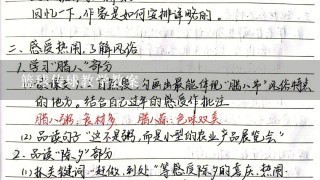 回忆一下，作家是如何安排详略的。
二、感受热闹，了解风俗
1、学习"腊八"部分
勾画出最能体现"腊八节"风俗特点
的地方。结合自己过年的感受作批注
腊八粥：食材多 腊八蒜：色味双美
(2) 品读句子"这不是粥，而是小型的农业产品展览会"
2、品读"除夕"部分
(1) 抓关键词"赶做、到处"等感受除夕的喜庆、热闹
篮球传球教学教案